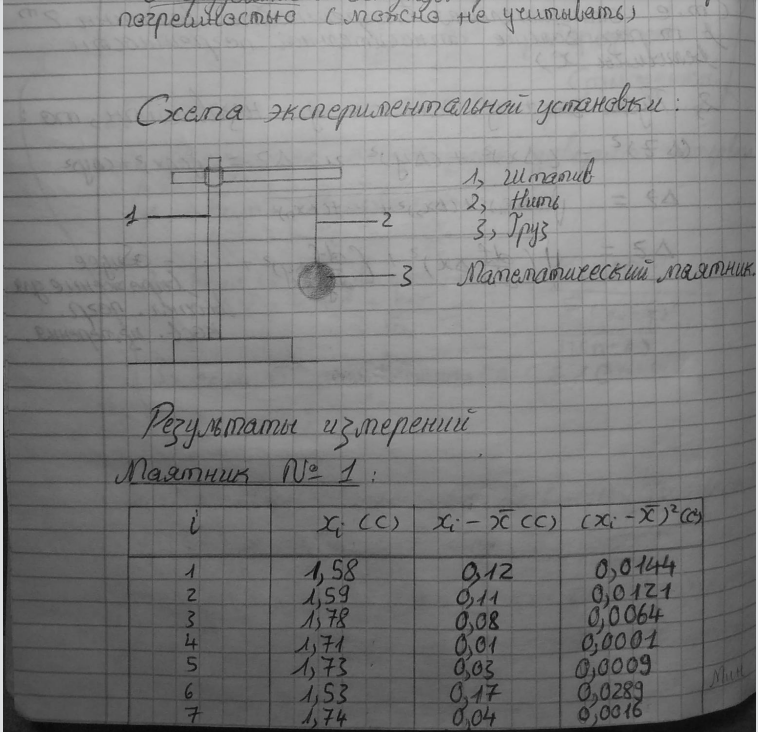 погрешностью (можно не учитывать)
Схема экспериментальной установки:
1, Штатив
2, Нить
3, Груз
Математический маятник.
1
2
3
Результаты измерений
Маятник № 1:
i xᵢ (с) xᵢ - x̄ (с) (xᵢ - x̄)² (с)
1 1,58 0,12 0,0144
2 1,59 0,11 0,0121
3 1,78 0,08 0,0064
4 1,71 0,01 0,0001
5 1,73 0,03 0,0009
6 1,53 0,17 0,0289
7 1,74 0,04 0,0016